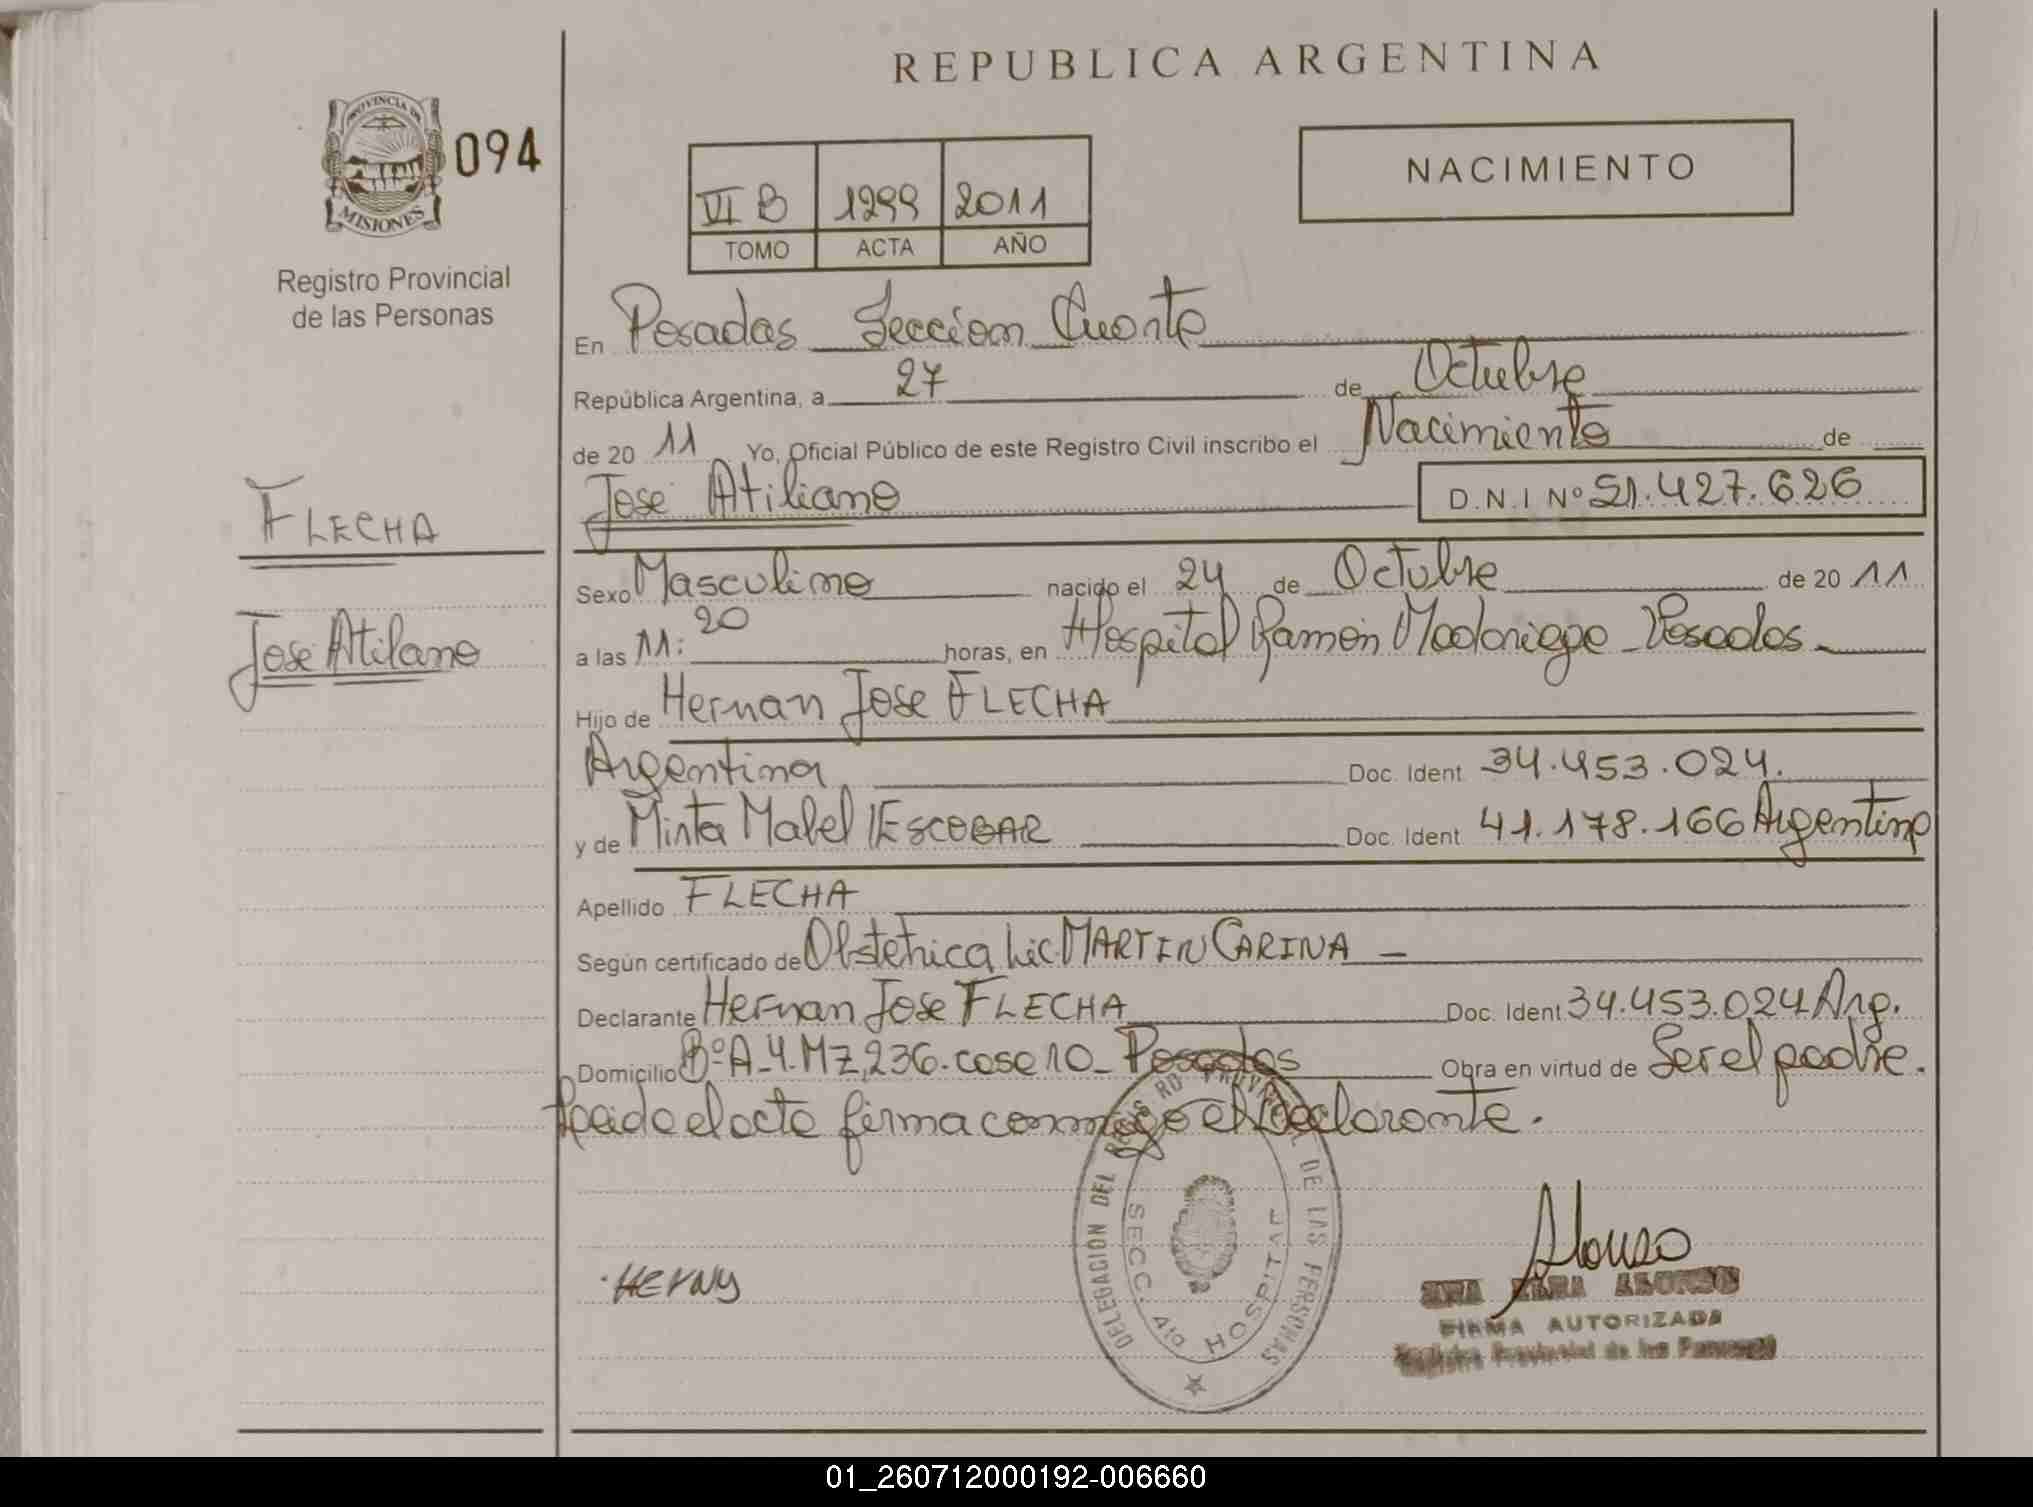 REPUBLICA ARGENTINA
PROVINCIA DE
MISIONES
094
Registro Provincial
de las Personas
VI B 1299 2011
TOMO ACTA AÑO
NACIMIENTO
En Posadas Seccion Cuarta
República Argentina, a 27 de Octubre
de 20 11 Yo, Oficial Público de este Registro Civil inscribo el Nacimiento de
Jose Atiliano D.N.I Nº 51.427.626
FLECHA
Jose Atilano
Sexo Masculino nacido el 24 de Octubre de 20 11
a las 11:20 horas, en Hospital Ramon Madariaga - Posadas -
Hijo de Hernan Jose FLECHA
Argentina Doc. Ident. 34.453.024.
y de Mirta Mabel ESCOBAR Doc. Ident 41.178.166 Argentina
Apellido FLECHA
Según certificado de Obstetrica Lic. MARTIN CARINA -
Declarante Hernan Jose FLECHA Doc. Ident 34.453.024 Arg.
Domicilio Bº A-4. MZ,236. casa 10- Posadas Obra en virtud de Ser el padre.
Leida el acta firma conmigo el declarante.
DELEGACION DEL REGISTRO PROVINCIAL DE LAS PERSONAS
SECC. 4ta HOSPITAL
Herny
Alonso
ALONSO
FIRMA AUTORIZADA
Registro Provincial de las Personas
01_260712000192-006660